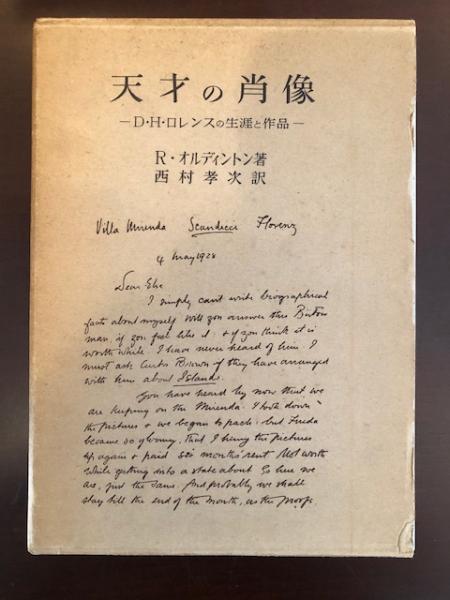 天才の肖像
—D·H·ロレンスの生涯と作品—
R·オルディントン著
西村孝次訳
Villa Mirenda Scandicci Florenz
4 May 1928
Dear Else
I simply can't write biographical
facts about myself. Will you answer this Button
man, if you feel like it: & if you think it is
worth while. I have never heard of him. I
must ask Curtis Brown if they have arranged
with him about Islands.
You have heard by now that we
are keeping on the Mirenda. I took down
the pictures & we began to pack: but Frieda
became so gloomy, that I hung the pictures
up again & paid six months' rent. Not worth
while getting into a state about. So here we
are, just the same. And probably we shall
stay till the end of the month, as the proofs